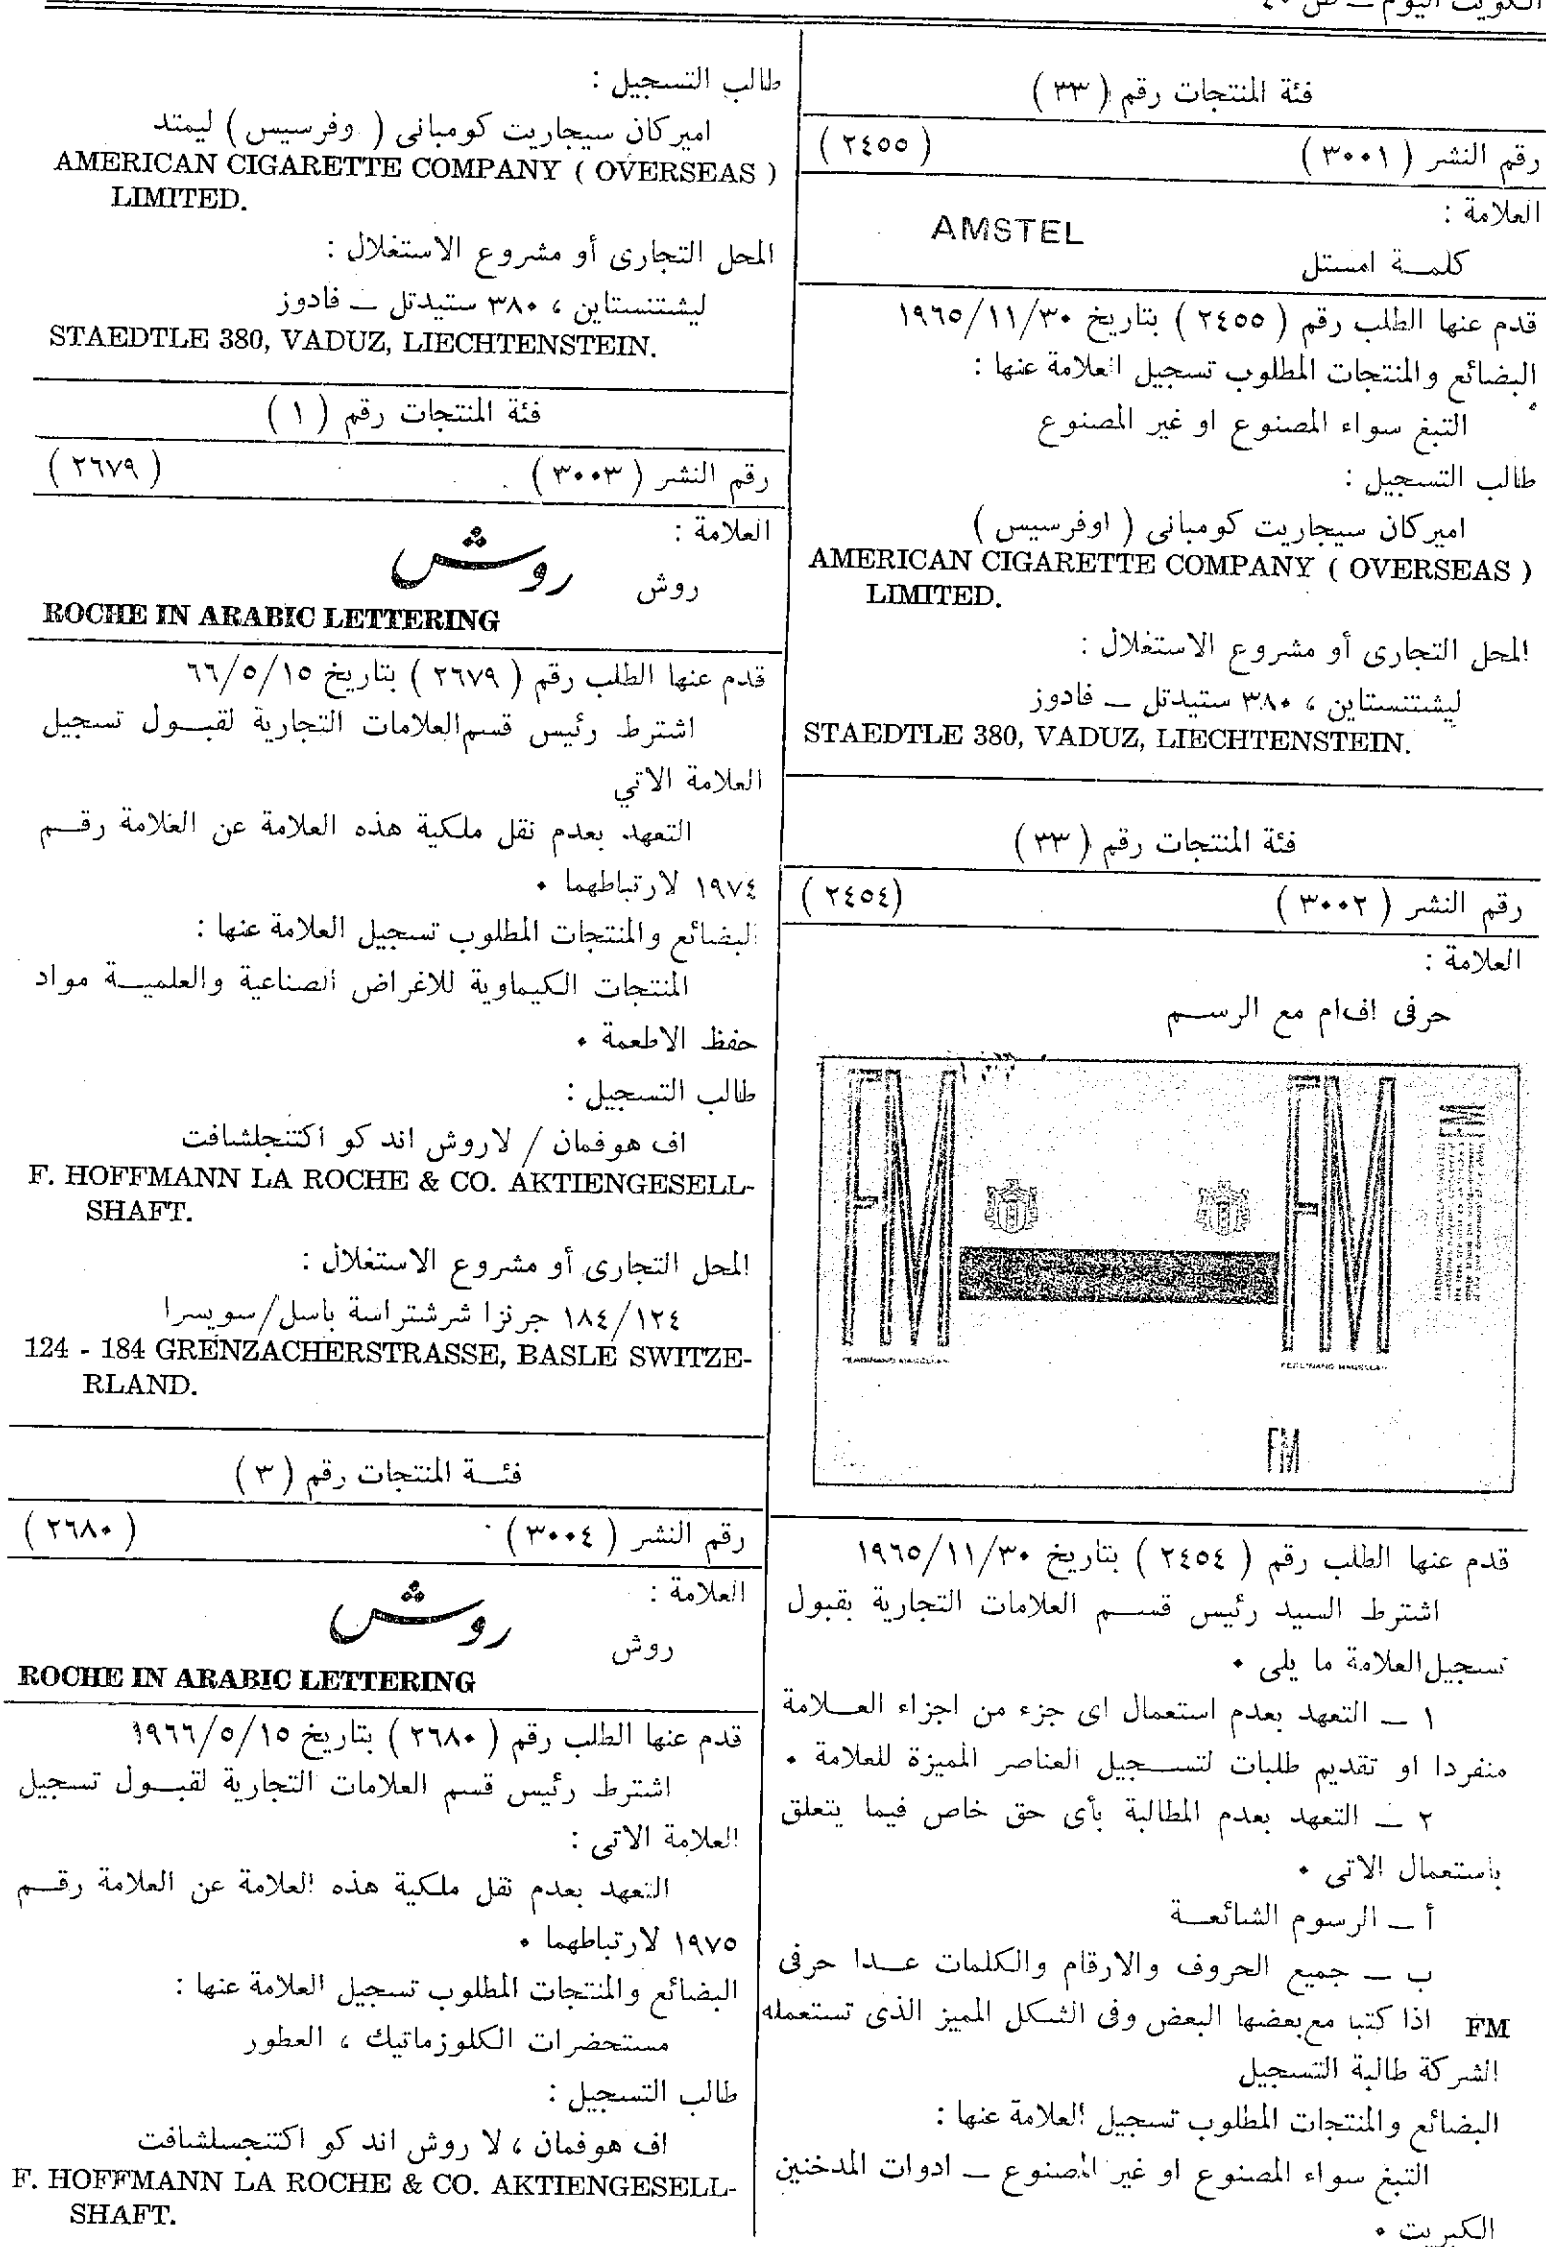 الكويت اليوم ــ ص ٤٠
فئة المنتجات رقم ( ٣٣ )
رقم النشر ( ٣٠٠١ ) ( ٢٤٥٥ )
العلامة :
AMSTEL
كلمــة امستل
قدم عنها الطلب رقم ( ٢٤٥٥ ) بتاريخ ١٩٦٥/١١/٣٠
البضائع والمنتجات المطلوب تسجيل العلامة عنها :
التبغ سواء المصنوع او غير المصنوع
طالب التسجيل :
اميركان سيجاريت كومبانى ( اوفرسيس )
AMERICAN CIGARETTE COMPANY ( OVERSEAS )
LIMITED.
المحل التجارى أو مشروع الاستغلال :
ليشتنستاين ، ٣٨٠ ستيدتل ــ فادوز
STAEDTLE 380, VADUZ, LIECHTENSTEIN.
فئة المنتجات رقم ( ٣٣ )
رقم النشر ( ٣٠٠٢ ) (٢٤٥٤ )
العلامة :
حرفى اف ام مع الرســم
FM FM FM
FERDINAND MAGELLAN FERDINAND MAGELLAN
FM
قدم عنها الطلب رقم ( ٢٤٥٤ ) بتاريخ ١٩٦٥/١١/٣٠
اشترط السيد رئيس قســم العلامات التجارية بقبول
تسجيل العلامة ما يلى ٠
١ ــ التعهد بعدم استعمال اى جزء من اجزاء العــلامة
منفردا او تقديم طلبات لتســجيل العناصر المميزة للعلامة ٠
٢ ــ التعهد بعدم المطالبة بأى حق خاص فيما يتعلق
باستعمال الاتى ٠
أ ــ الرسوم الشائعــة
ب ــ جميع الحروف والارقام والكلمات عــدا حرفى
FM اذا كتبا مع بعضها البعض وفى الشكل المميز الذى تستعمله
الشركة طالبة التسجيل
البضائع والمنتجات المطلوب تسجيل العلامة عنها :
التبغ سواء المصنوع او غير المصنوع ــ ادوات المدخنين
الكبريت ٠
طالب التسجيل :
اميركان سيجاريت كومبانى ( وفرسيس ) ليمتد
AMERICAN CIGARETTE COMPANY ( OVERSEAS )
LIMITED.
المحل التجارى أو مشروع الاستغلال :
ليشتنستاين ، ٣٨٠ ستيدتل ــ فادوز
STAEDTLE 380, VADUZ, LIECHTENSTEIN.
فئة المنتجات رقم ( ١ )
رقم النشر ( ٣٠٠٣ ) ( ٢٦٧٩ )
العلامة :
روش
روش
ROCHE IN ARABIC LETTERING
قدم عنها الطلب رقم ( ٢٦٧٩ ) بتاريخ ٦٦/٥/١٥
اشترط رئيس قسم العلامات التجارية لقبــول تسجيل
العلامة الاتي
التعهد بعدم نقل ملكية هذه العلامة عن العلامة رقــم
١٩٧٤ لارتباطهما ٠
البضائع والمنتجات المطلوب تسجيل العلامة عنها :
المنتجات الكيماوية للاغراض الصناعية والعلميــة مواد
حفظ الاطعمة ٠
طالب التسجيل :
اف هوفمان / لاروش اند كو اكتنجلشافت
F. HOFFMANN LA ROCHE & CO. AKTIENGESELL-
SHAFT.
المحل التجارى أو مشروع الاستغلال :
١٨٤/١٢٤ جرنزا شرشتراسة باسل/سويسرا
124 - 184 GRENZACHERSTRASSE, BASLE SWITZE-
RLAND.
فئــة المنتجات رقم ( ٣ )
رقم النشر ( ٣٠٠٤ ) ( ٢٦٨٠ )
العلامة :
روش
روش
ROCHE IN ARABIC LETTERING
قدم عنها الطلب رقم ( ٢٦٨٠ ) بتاريخ ١٩٦٦/٥/١٥
اشترط رئيس قسم العلامات التجارية لقبــول تسجيل
العلامة الاتى :
التعهد بعدم نقل ملكية هذه العلامة عن العلامة رقــم
١٩٧٥ لارتباطهما ٠
البضائع والمنتجات المطلوب تسجيل العلامة عنها :
مستحضرات الكلوزماتيك ، العطور
طالب التسجيل :
اف هوفمان ، لا روش اند كو اكتنجسلشافت
F. HOFFMANN LA ROCHE & CO. AKTIENGESELL-
SHAFT.